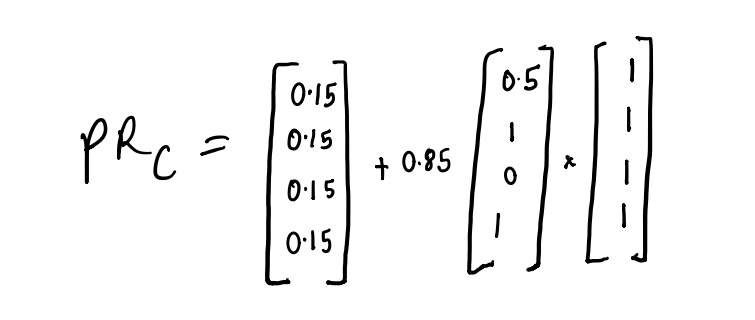 PR_C = [0.15 0.15 0.15 0.15] + 0.85 [0.5 1 0 1] * [1 1 1 1]